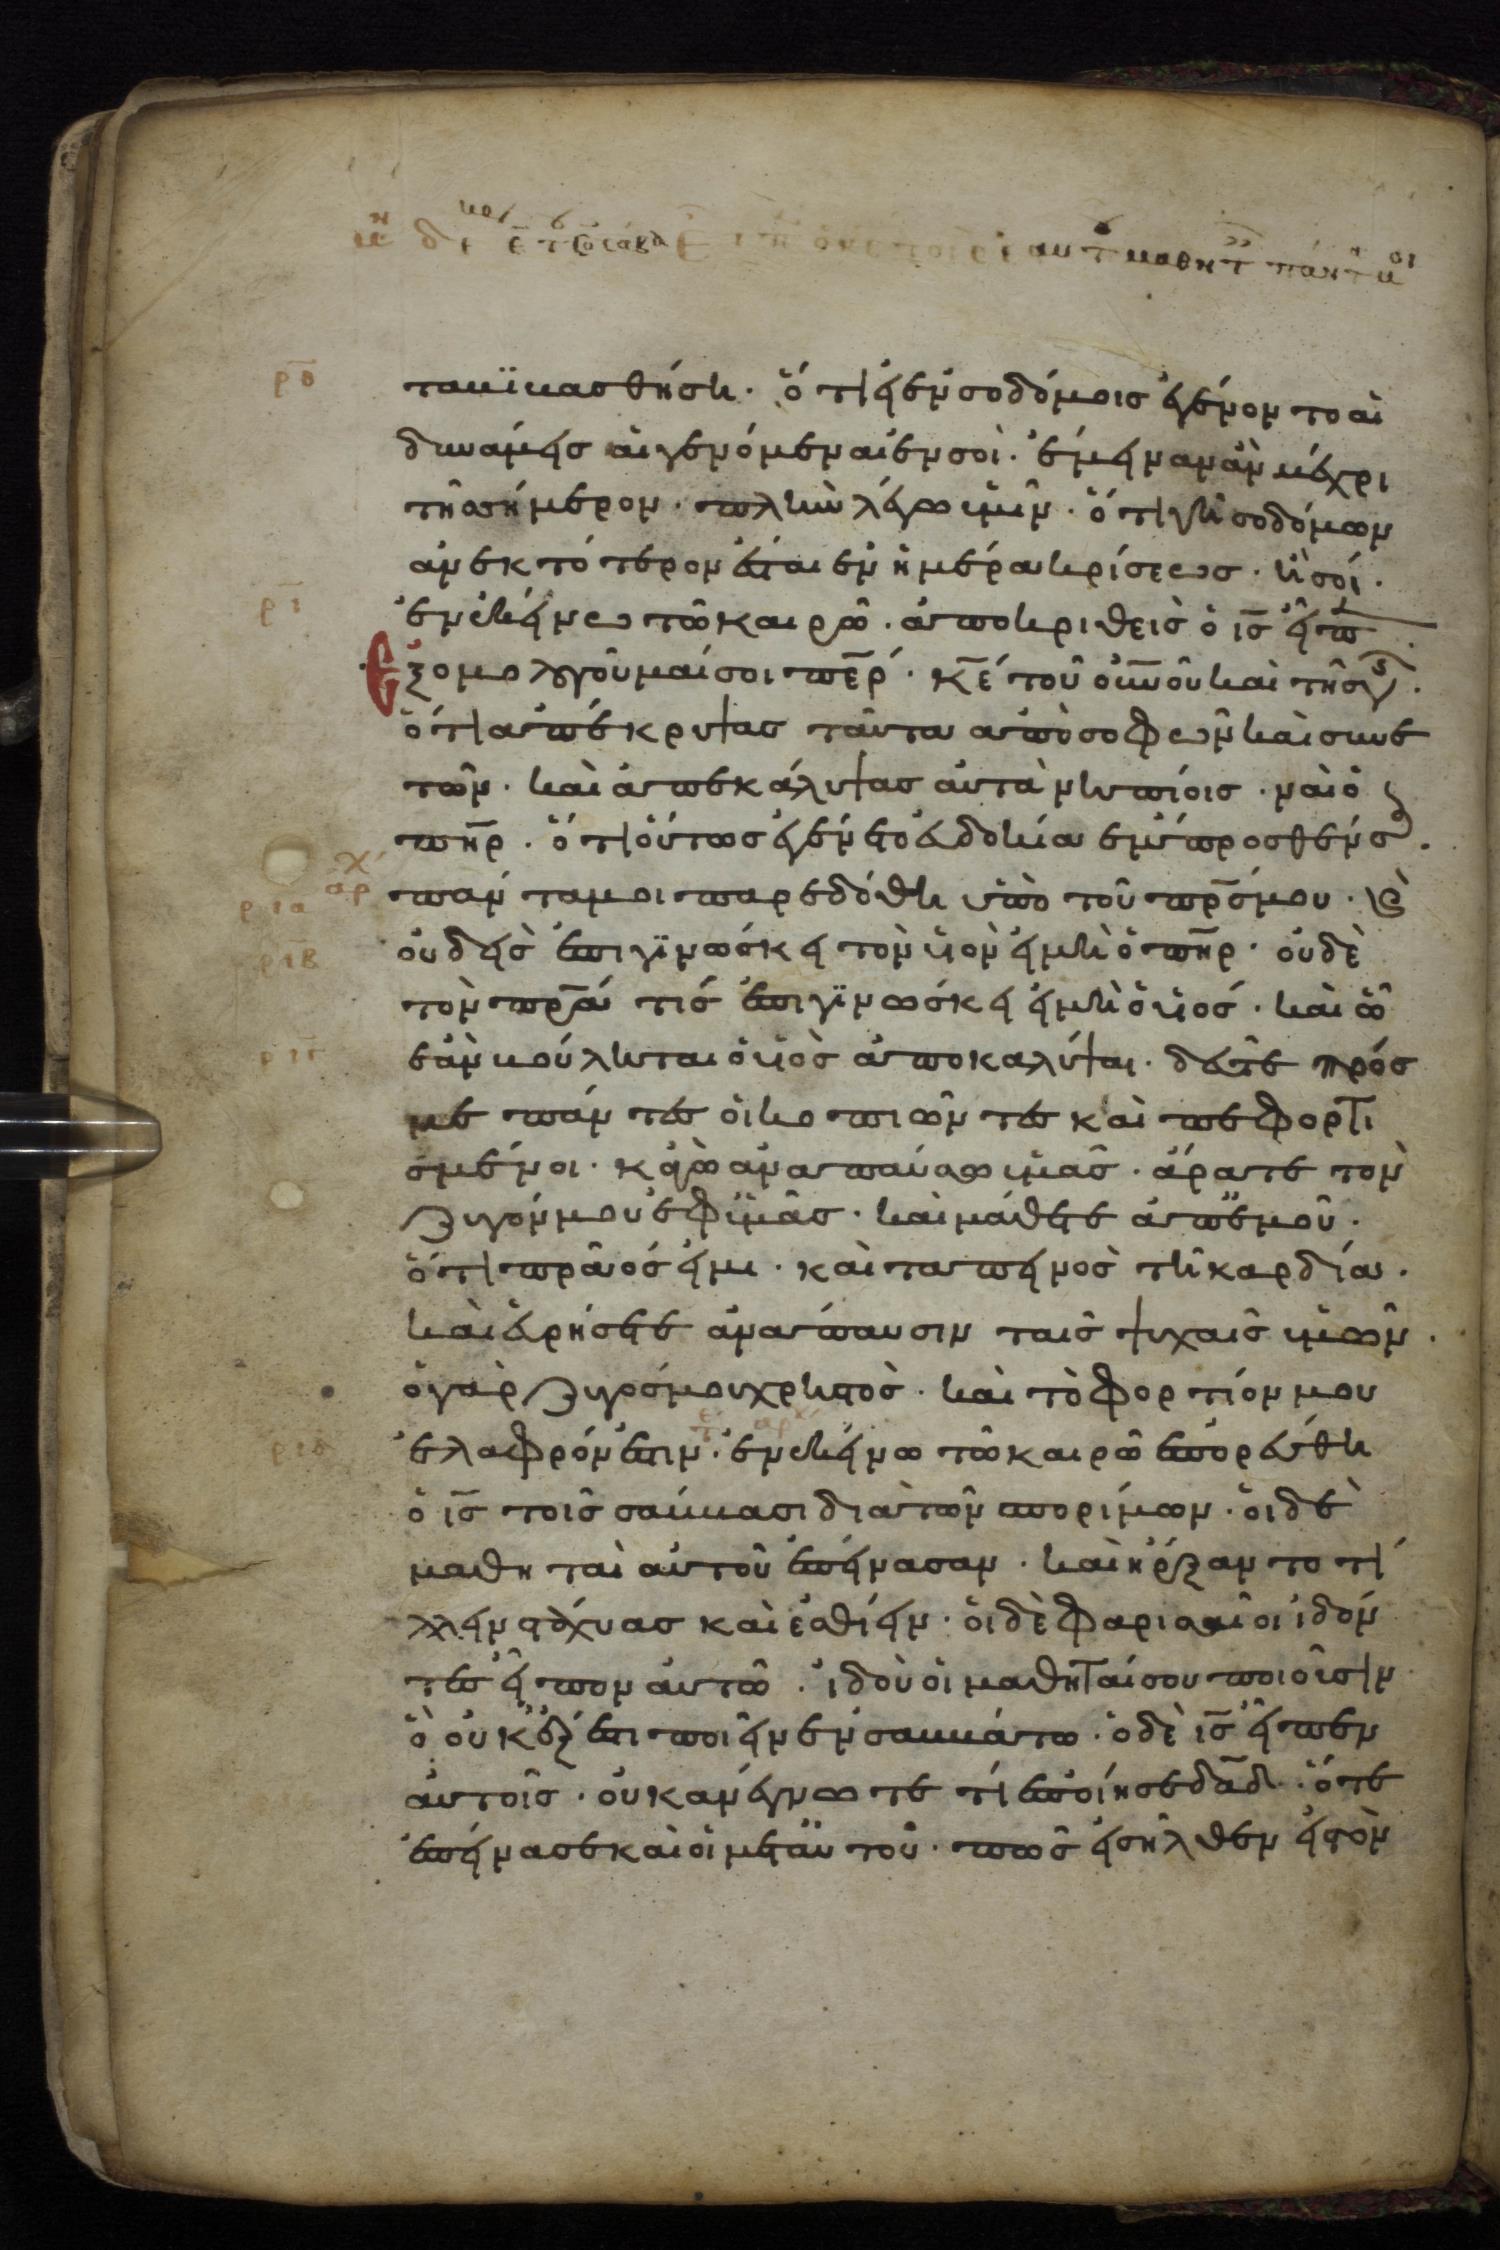 ταβϊβασθήση· ὅτι εἰ ἐν σοδόμοις ἐγένοντο αἱ
δυνάμεις αἱ γενόμεναι ἐν σοὶ· ἔμειναν ἂν μέχρι
τῆς σήμερον· πλὴν λέγω ὑμῖν· ὅτι γῆ σοδόμων
ἀνεκτότερον ἔσται ἐν ἡμέρα κρίσεως· ἢ σοί·
ἐν ἐκείνω τῶ καιρῶ· ἀποκριθεὶς ὁ ις εἶπ
Ἐξομολογοῦμαί σοι περ· κε τοῦ οὐνοῦ καὶ τῆς γ·
ὅτι ἀπέκρυψας ταῦτα ἀπὸ σοφῶν καὶ συνε
τῶν· καὶ ἀπεκάλυψας αὐτὰ νηπίοις· ναὶ ὁ
πηρ· ὅτι οὕτως ἐγένετο εὐδοκία ἔμπροσθέν σου·
ριι αρχ πάντα μοι παρεδόθη ὑπὸ τοῦ πρς μου· καὶ
οὐδεὶς ἐπιγϊνώσκει τὸν υἱὸν εἰ μὴ ὁ πηρ· οὐδὲ
τὸν πρα τίς ἐπιγϊνώσκει εἰ μὴ ὁ υἱός· καὶ ὧ
ἐὰν βούληται ὁ υἱὸς ἀποκαλύψαι· δεῦτε πρός
με πάντες οἱ κοπιῶντες καὶ πεφορτι
σμένοι· κἀγὼ ἀναπαύσω ὑμᾶς· ἄρατε τὸν
ζυγόν μου ἐφ ϋμᾶς· καὶ μάθετε ἀπ ἐμοῦ·
ὅτι πρᾶός εἰμι· καὶ ταπεινὸς τῆ καρδία·
καὶ εὑρήσετε ἀνάπαυσιν ταῖς ψυχαῖς ὑμῶν·
ὁ γὰρ ζυγός μου χρηστὸς· καὶ τὸ φορτίον μου
ἐλαφρόν ἐστιν· ἐν ἐκείνω τῶ καιρῶ ἐπορεύθη
ὁ ις τοῖς σάββασι διὰ τῶν σπορίμων· οἱ δὲ
μαθηταὶ αὐτοῦ ἐπείνασαν· καὶ ἤρξαντο τί
λλειν στάχυας καὶ ἐσθίειν· οἱ δὲ φαρισαῖοι ἰδόν
τες εἶπον αὐτῶ· ἰδοὺ οἱ μαθηταί σου ποιοῦσιν
ὃ οὐκ ἔξεστι ποιεῖν ἐν σαββάτω· ὁ δὲ ις εἶπεν
αὐτοῖς· οὐκ ἀνέγνωτε τί ἐποίησε δαδ· ὅτε
ἐπείνασε καὶ οἱ μετ αὐτοῦ· πῶς εἰσῆλθεν εἰς τὸν